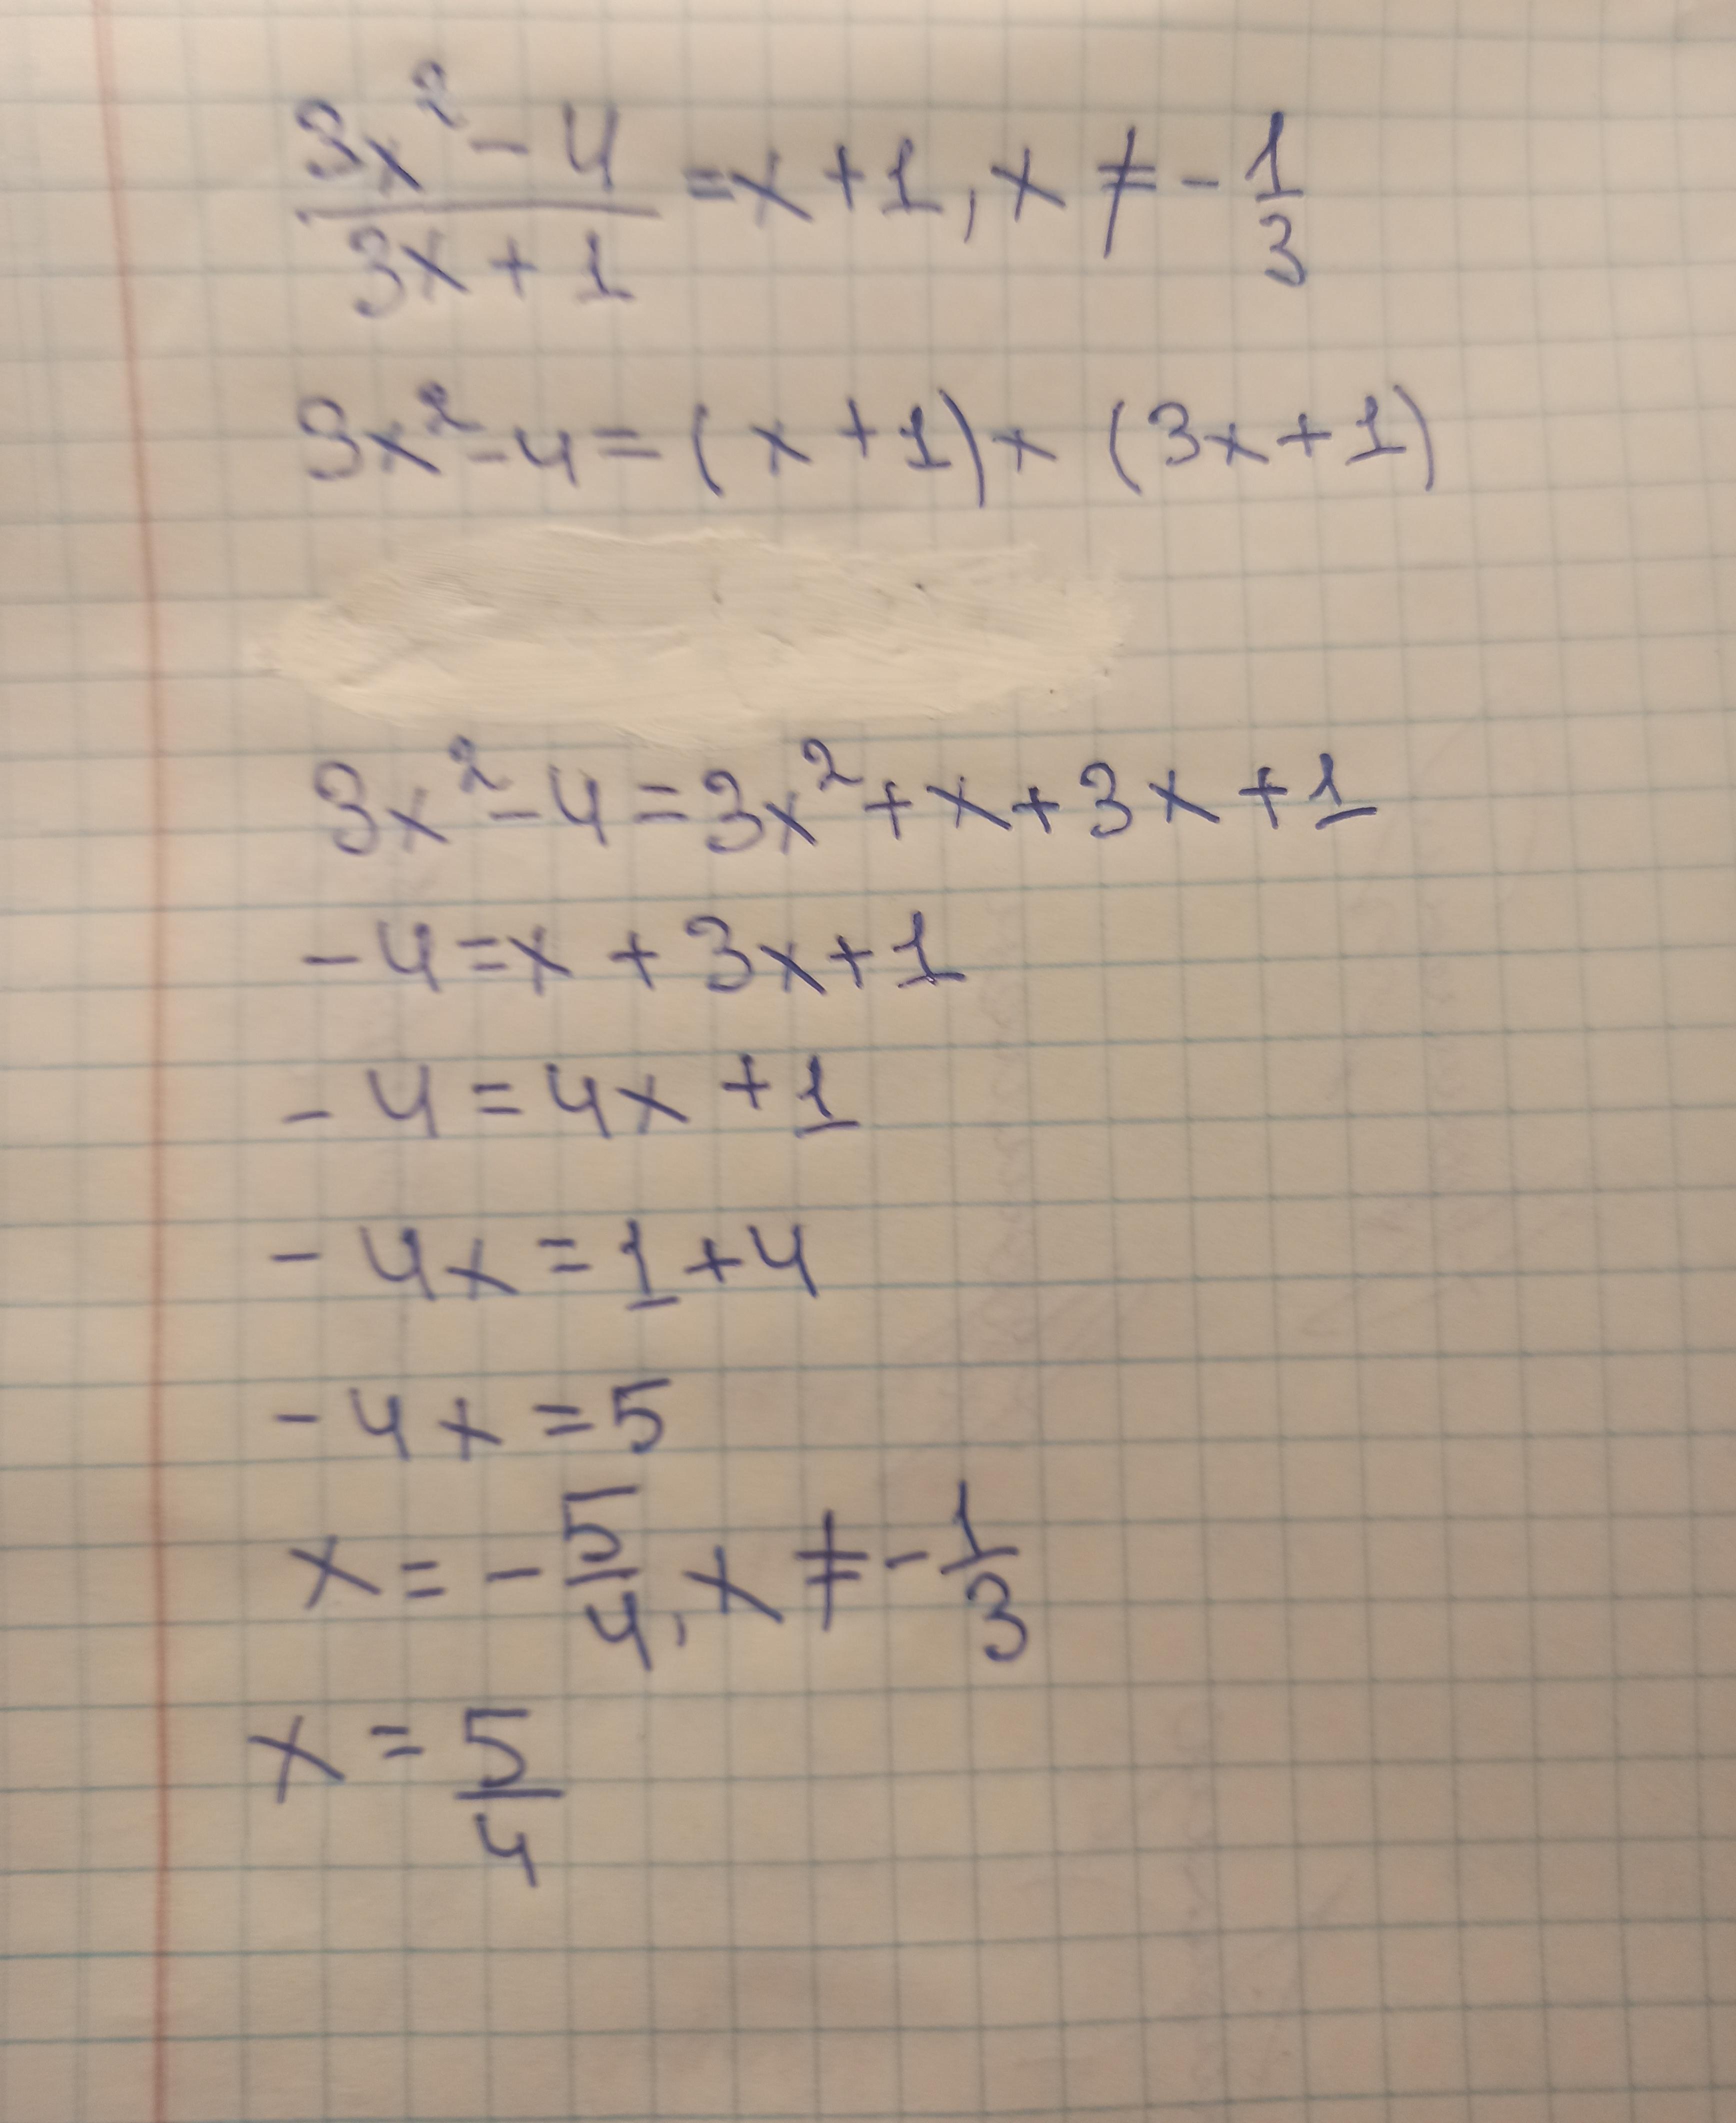 (3x² - 4)/(3x + 1) = x + 1, x ≠ - 1/3
3x² - 4 = (x + 1) × (3x + 1)
3x² - 4 = 3x² + x + 3x + 1
- 4 = x + 3x + 1
- 4 = 4x + 1
- 4x = 1 + 4
- 4x = 5
x = - 5/4, x ≠ - 1/3
x = 5/4